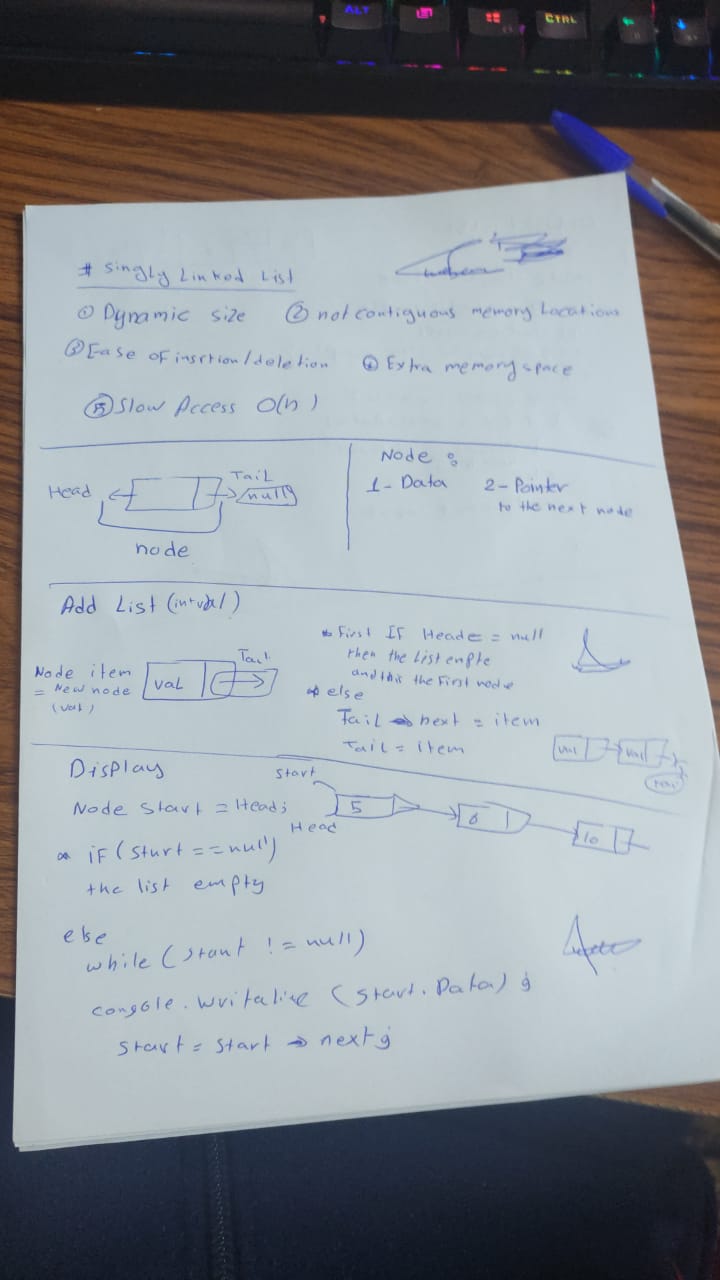 ALT
CTRL
# Singly Linked List
① Dynamic size ② not contiguous memory Locations
③ Ease of insrtion/deletion ④ Extra memory space
⑤ Slow Access O(n)
Head Tail
null
node
Node :
1- Data 2- Pointer
to the next node
Add List (int val)
Node item
= New node
(val)
val
Tail
* First IF Heade = null
then the List empte
and this the First node
* else
Tail → next = item
Tail = item
val val
null
Display
Node Start = Head;
Start
Head
5
8
10
* if (Start == null)
the list empty
else
while (Start != null)
console.writeline (Start.Data) ;
Start = Start → next ;